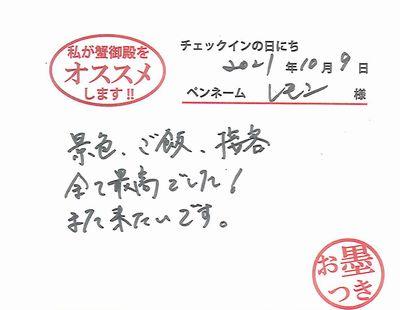 私が蟹御殿を
オススメ
します!!
チェックインの日にち
2021年10月9日
ペンネーム レモン 様
景色、ご飯、接客
全て最高でした!
また来たいです。
お墨
つき